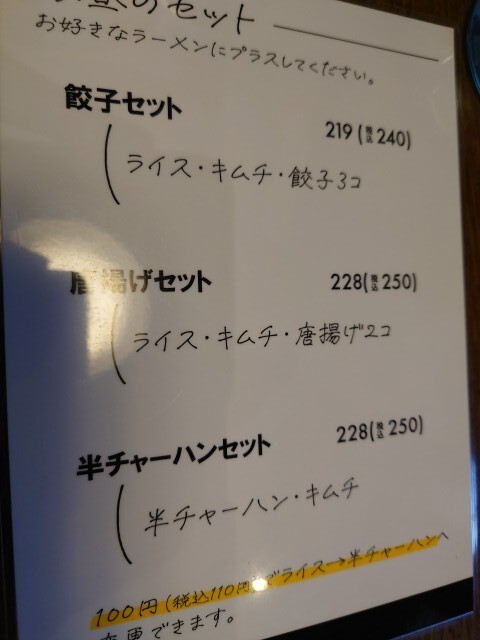 のセット
お好きなラーメンにプラスしてください。
餃子セット
219(税込240)
ライス・キムチ・餃子3コ
唐揚げセット
228(税込250)
ライス・キムチ・唐揚げ2コ
半チャーハンセット
228(税込250)
半チャーハン・キムチ
100円(税込110円)でライス→半チャーハンへ
変更できます。